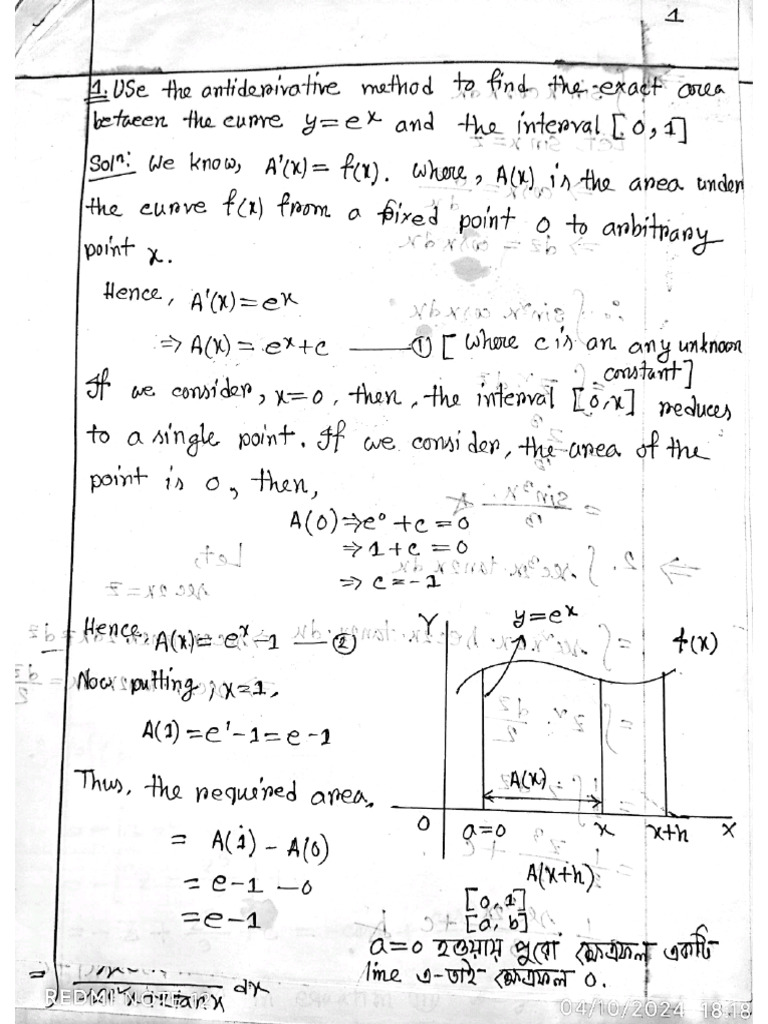 1
1. Use the antiderivative method to find the exact area
between the curve y=e^x and the interval [0,1]
Solⁿ: We know, A'(x)=f(x). Where, A(x) is the area under
the curve f(x) from a fixed point 0 to arbitrary
point x.
Hence, A'(x)=e^x
⇒ A(x) = e^x+c ——① [Where c is an any unknoon
constant]
If we consider, x=0, then, the interval [0,x] reduces
to a single point. If we consider, the area of the
point is 0, then,
A(0)⇒e^0+c=0
⇒1+c=0
⇒ c=-1
Hence, A(x)=e^x-1 —②
Now putting, x=1,
A(1)=e^1-1=e-1
Thus, the required area,
= A(1) - A(0)
= e-1-0
=e-1
Y
y=e^x
f(x)
A(x)
0 a=0 x x+h X
A(x+h)
[0,1]
[a,b]
a=0 হওয়ায় পুরো ক্ষেত্রফল একটি
line এ-তাই ক্ষেত্রফল 0.
dx
REDMI
04/10/2024 18:18